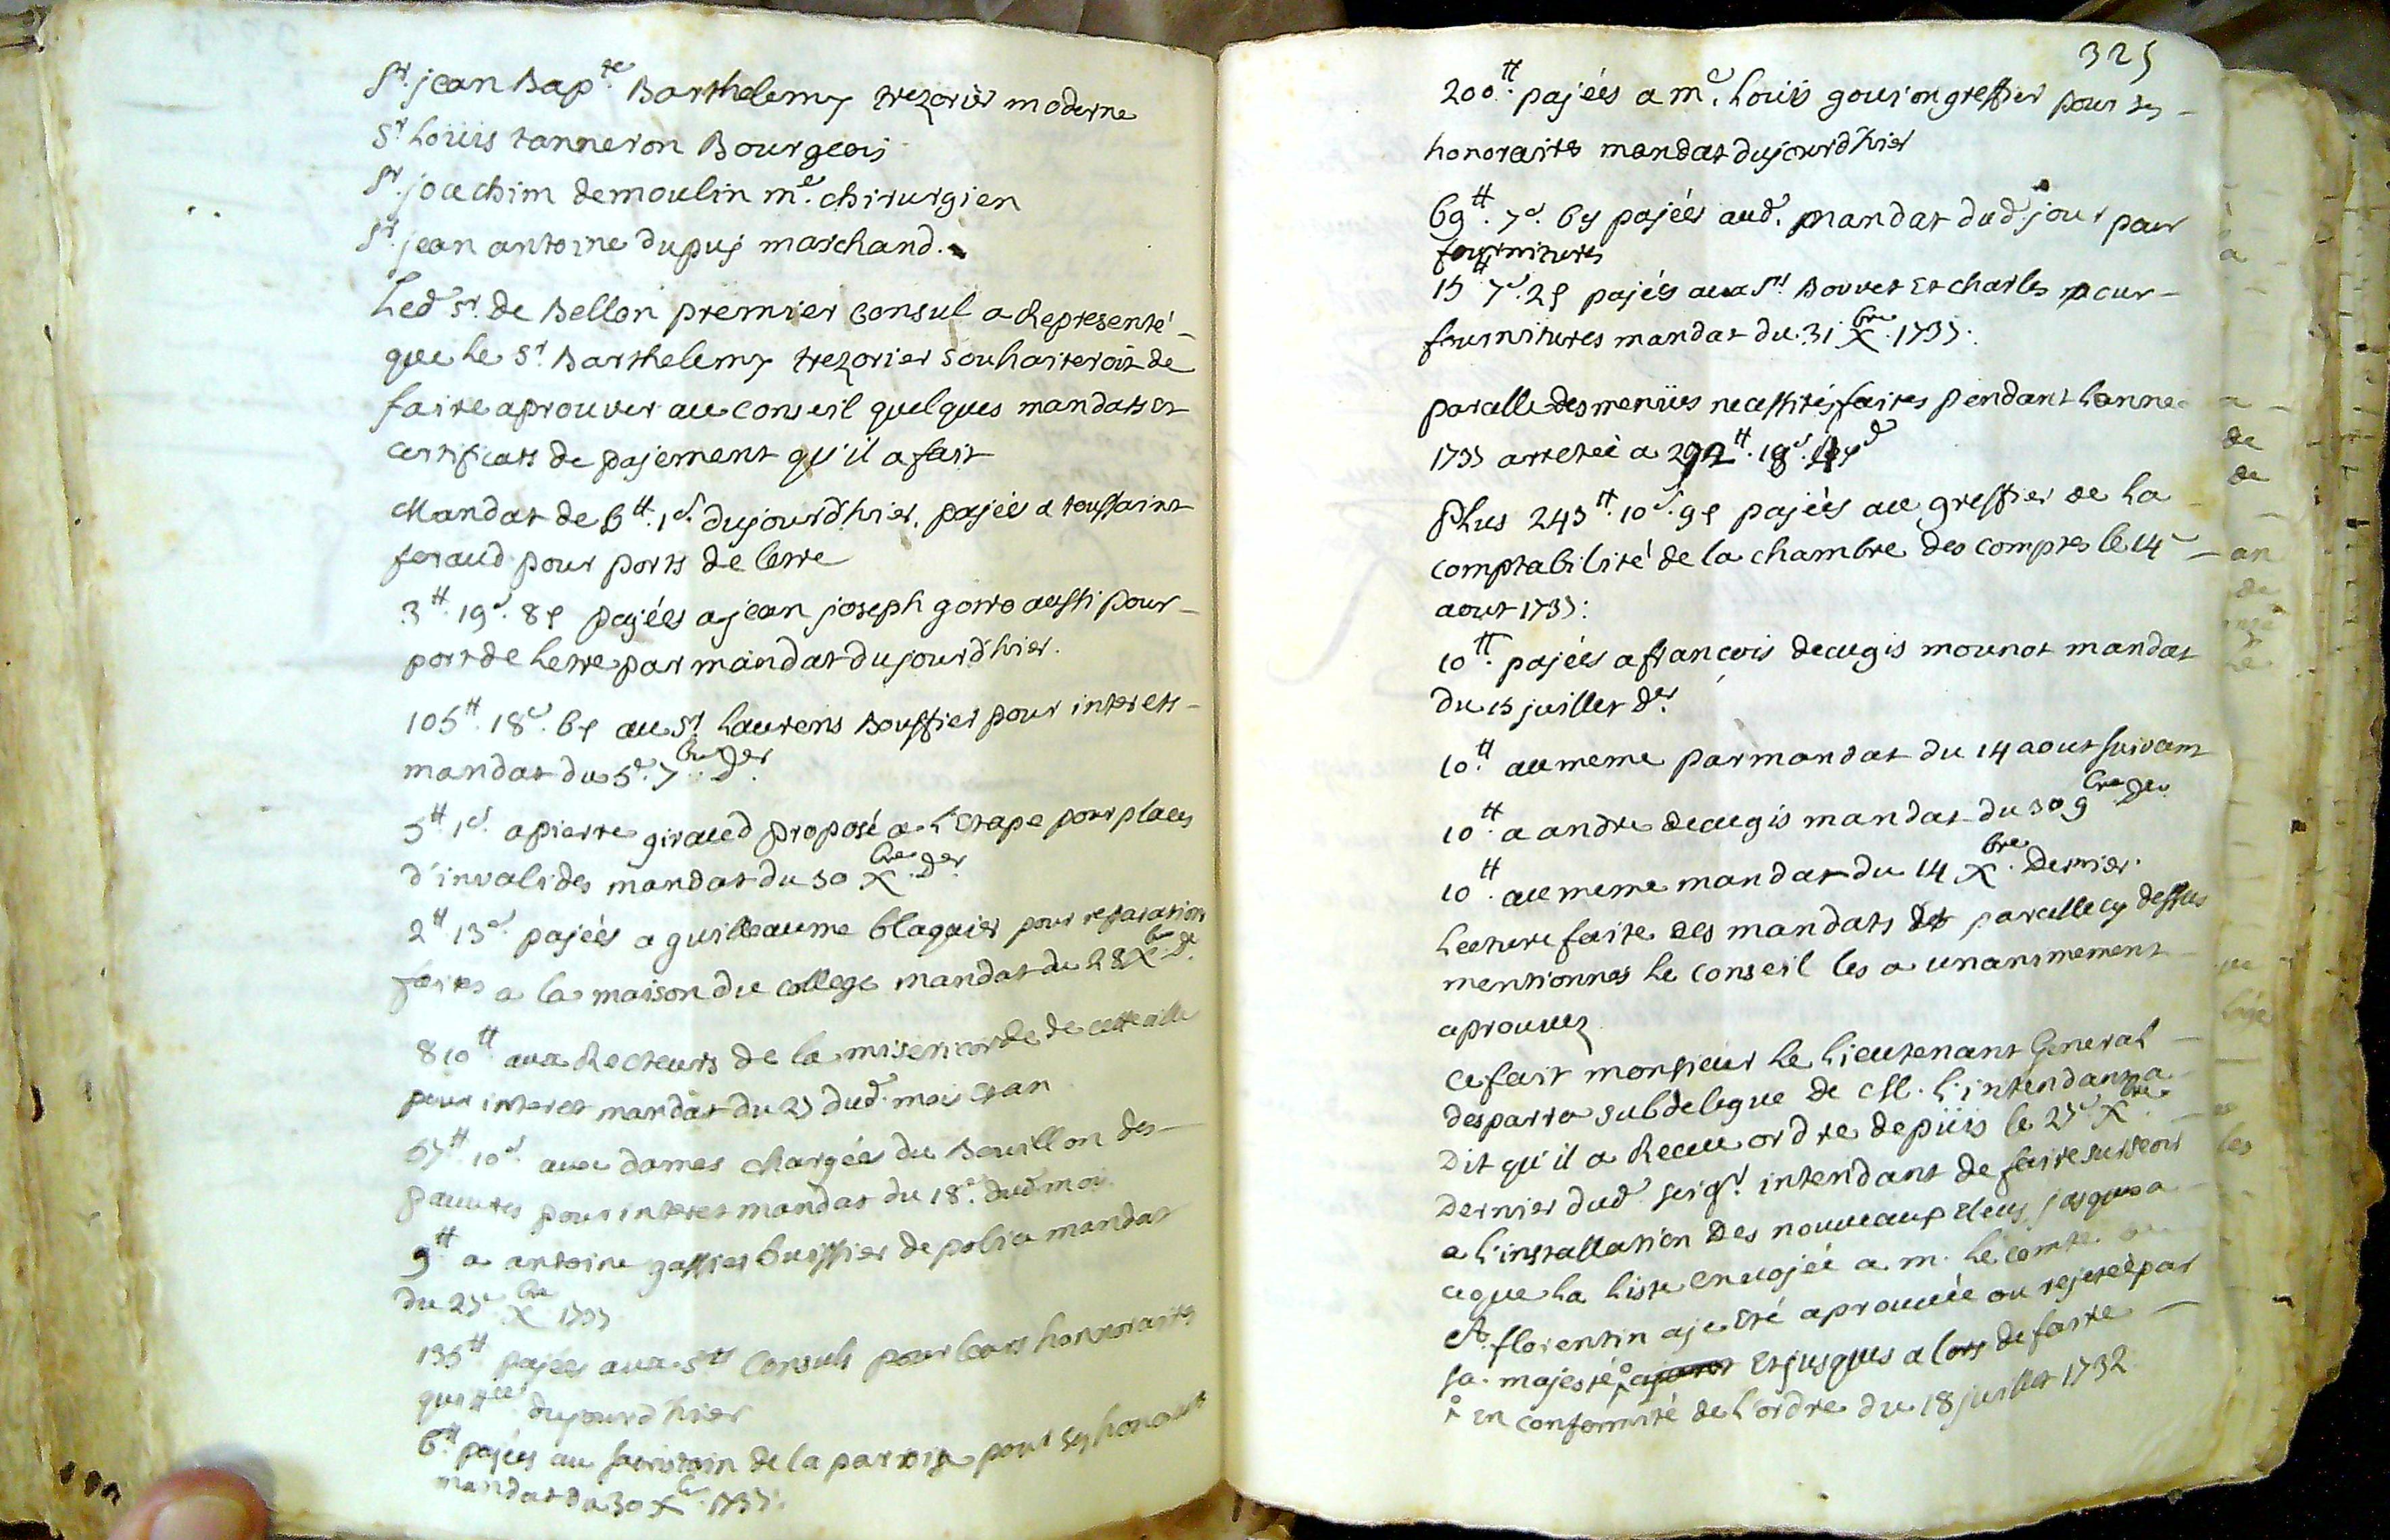 Sr. jean Bapte. Barthelemy trezorier moderne
Sr. Loüis tanneron Bourgeois
Sr. joachim demoulin me. chirurgien
Sr. jean antoine dupuj marchand.
Led. Sr. de Bellon premier consul a Representé
que le Sr. Barthelemy trezorier souhaiteroit de
faire aprouver au conseil quelques mandats et
certificats de pajement qu'il a fait
Mandat de 6 ₶. 1 s. dujourdhier, pajées a toussaint
feraud pour ports de letre
3 ₶. 19 s. 8 d pajées a jean joseph gorro aussi pour
port de letre par mandat dujourdhier.
105 ₶. 18 s. 6 d au Sr. Laurens Bouffier pour interets
mandat du 5e. 7bre. der.
5 ₶. 1 s. a pierre giraud proposé a l'Etape pour places
d'invalides mandat du 30 Xbre. der.
2 ₶. 13 s. pajées a guilleaume blaquier pour reparations
faites a la maison du college mandat du 28 Xbre. der.
810 ₶. aux Recteurs de la misericorde de cette ville
pour interet mandat du 23 dud. mois et an
67 ₶. 10 s. aux dames chargées du Bouillon des
pauvres pour interet mandat du 18e. dud. mois.
9 ₶. a antoine gassier huissier de police mandat
du 23e Xbre 1735
135 ₶. pajées aux Srs Consuls pour leurs honnoraires
quittce dujourdhier
6 ₶. pajées au sacristain de la paroisse pour ses honorair
mandat du 30 Xbre. 1735.
325
200 ₶. pajées a me. Loüis goujon greffier pour ses
honoraires mandat dujourdhier
69 ₶. 7 s. 6 d pajées aud. mandat dud. jour pour
fournitures
15 ₶ 7 s. 2 d pajés aux Srs Bouvet et charles pour
fournitures mandat du 31 Xbre. 1735.
parcelle des menües necessités faites pendant lannee
1735 arretée a 292 ₶. 18 s.
Plus 243 ₶. 10 s. 9 d pajées au greffier de la
comptabilité de la chambre des comptes le 14e
aout 1735.
10 ₶. pajées a francois decugis mounot mandat
du 15 juillet der.
10 ₶. au meme par mandat du 14 aout suivant
10 ₶. a andre decugis mandat du 30 9bre der
10 ₶. au meme mandat du 14 Xbre. Dernier.
Lecture faite des mandats et parcelle cy dessus
mentionnes le conseil les a unanimement
aprouvez
Ce fait monsieur le Lieutenant General
desparra subdelegue de M. l'intendant a
Dit qu'il a Receu ordre depüis le 25e Xbre
Dernier dud. seigr. intendant de faire surseoir
a l'installation des nouveaux eleus jusques a
ce que la liste envojée a m. le comte de
St. florentin aje eté aprouvée ou rejetée par
sa. majesté, et jusques a lors de faire
en conformité de l'ordre du 18 juillet 1732